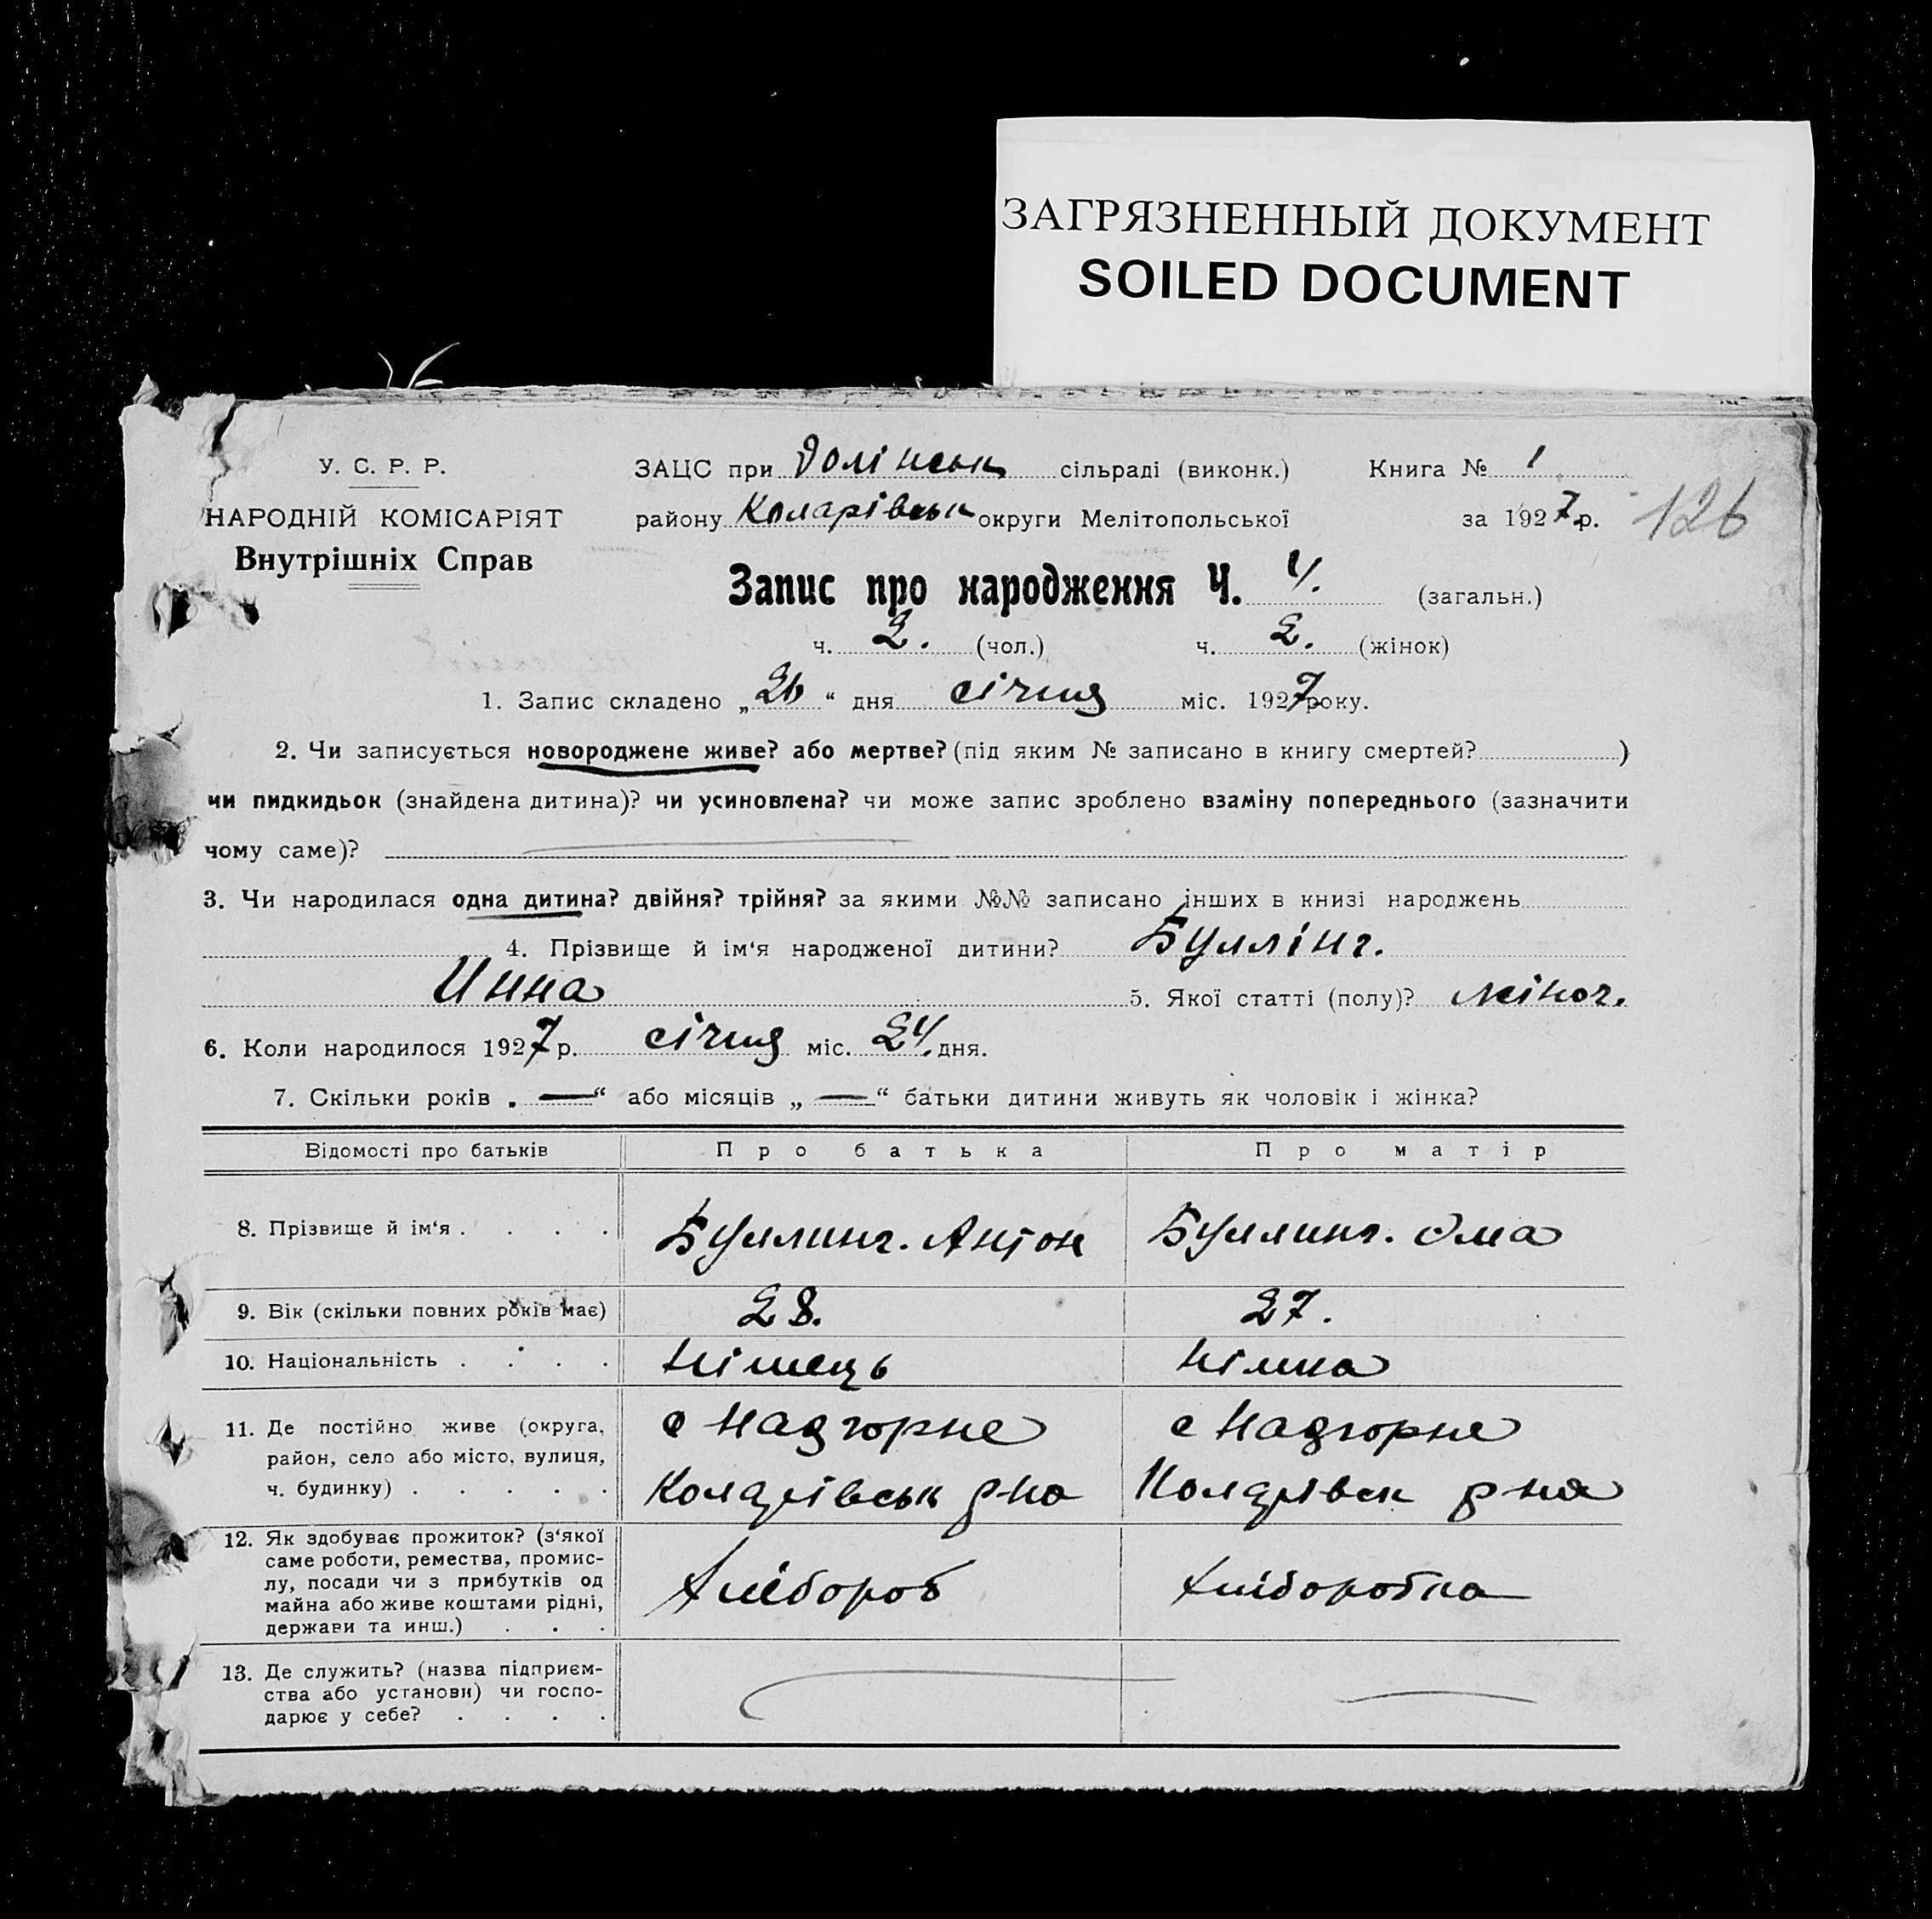 ЗАГРЯЗНЕННЫЙ ДОКУМЕНТ
SOILED DOCUMENT
У. С. Р. Р.
НАРОДНІЙ КОМІСАРІЯТ
Внутрішніх Справ
ЗАЦС при Долінськ сільраді (виконк.) Книга № 1
району Коларівськ округи Мелітопольської за 1927 р.
126
Запис про народження Ч. 4. (загальн.)
ч. 2. (чол.) ч. 2. (жінок)
1. Запис складено „26“ дня січня міс. 1927 року.
2. Чи записується новороджене живе? або мертве? (під яким № записано в книгу смертей? )
чи пидкидьок (знайдена дитина)? чи усиновлена? чи може запис зроблено взаміну попереднього (зазначити
чому саме)?
3. Чи народилася одна дитина? двійня? трійня? за якими №№ записано інших в книзі народжень
4. Прізвище й ім‘я народженої дитини? Буллінг.
Инна 5. Якої статті (полу)? жіноч.
6. Коли народилося 1927 р. січня міс. 24. дня.
7. Скільки років „—“ або місяців „—“ батьки дитини живуть як чоловік і жінка?
Відомості про батьків Про батька Про матір
8. Прізвище й ім‘я . . . . Буллинг. Антон Буллинг. Ома
9. Вік (скільки повних років має) 28. 27.
10. Національність . . . . Німець Німка
11. Де постійно живе (округа,
район, село або місто, вулиця,
ч. будинку) . . . . .
с Надгорне
Коларівськ р-на
с Надгорне
Коларівск р-на
12. Як здобуває прожиток? (з‘якої
саме роботи, ремества, промис-
лу, посади чи з прибутків од
майна або живе коштами рідні,
держави та инш.) . . .
Хлібороб
Хліборобка
13. Де служить? (назва підприєм-
ства або установи) чи госпо-
дарює у себе? . . . .